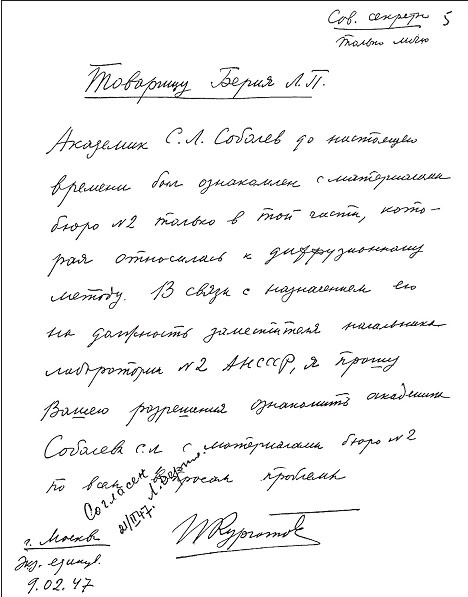 Сов. секретно 5
только лично
Товарищу Берия Л.П.
Академик С.Л. Соболев до настоящего
времени был ознакомлен с материалами
бюро №2 только в той части, кото-
рая относилась к диффузионному
методу. В связи с назначением его
на должность заместителя начальника
лаборатории №2 АН СССР, я прошу
Вашего разрешения ознакомить академика
Соболева С.Л. с материалами бюро №2
по всем вопросам проблемы
Согласен
Л. Берия
И Курчатов
г. Москва
Экз. единств.
9.02.47